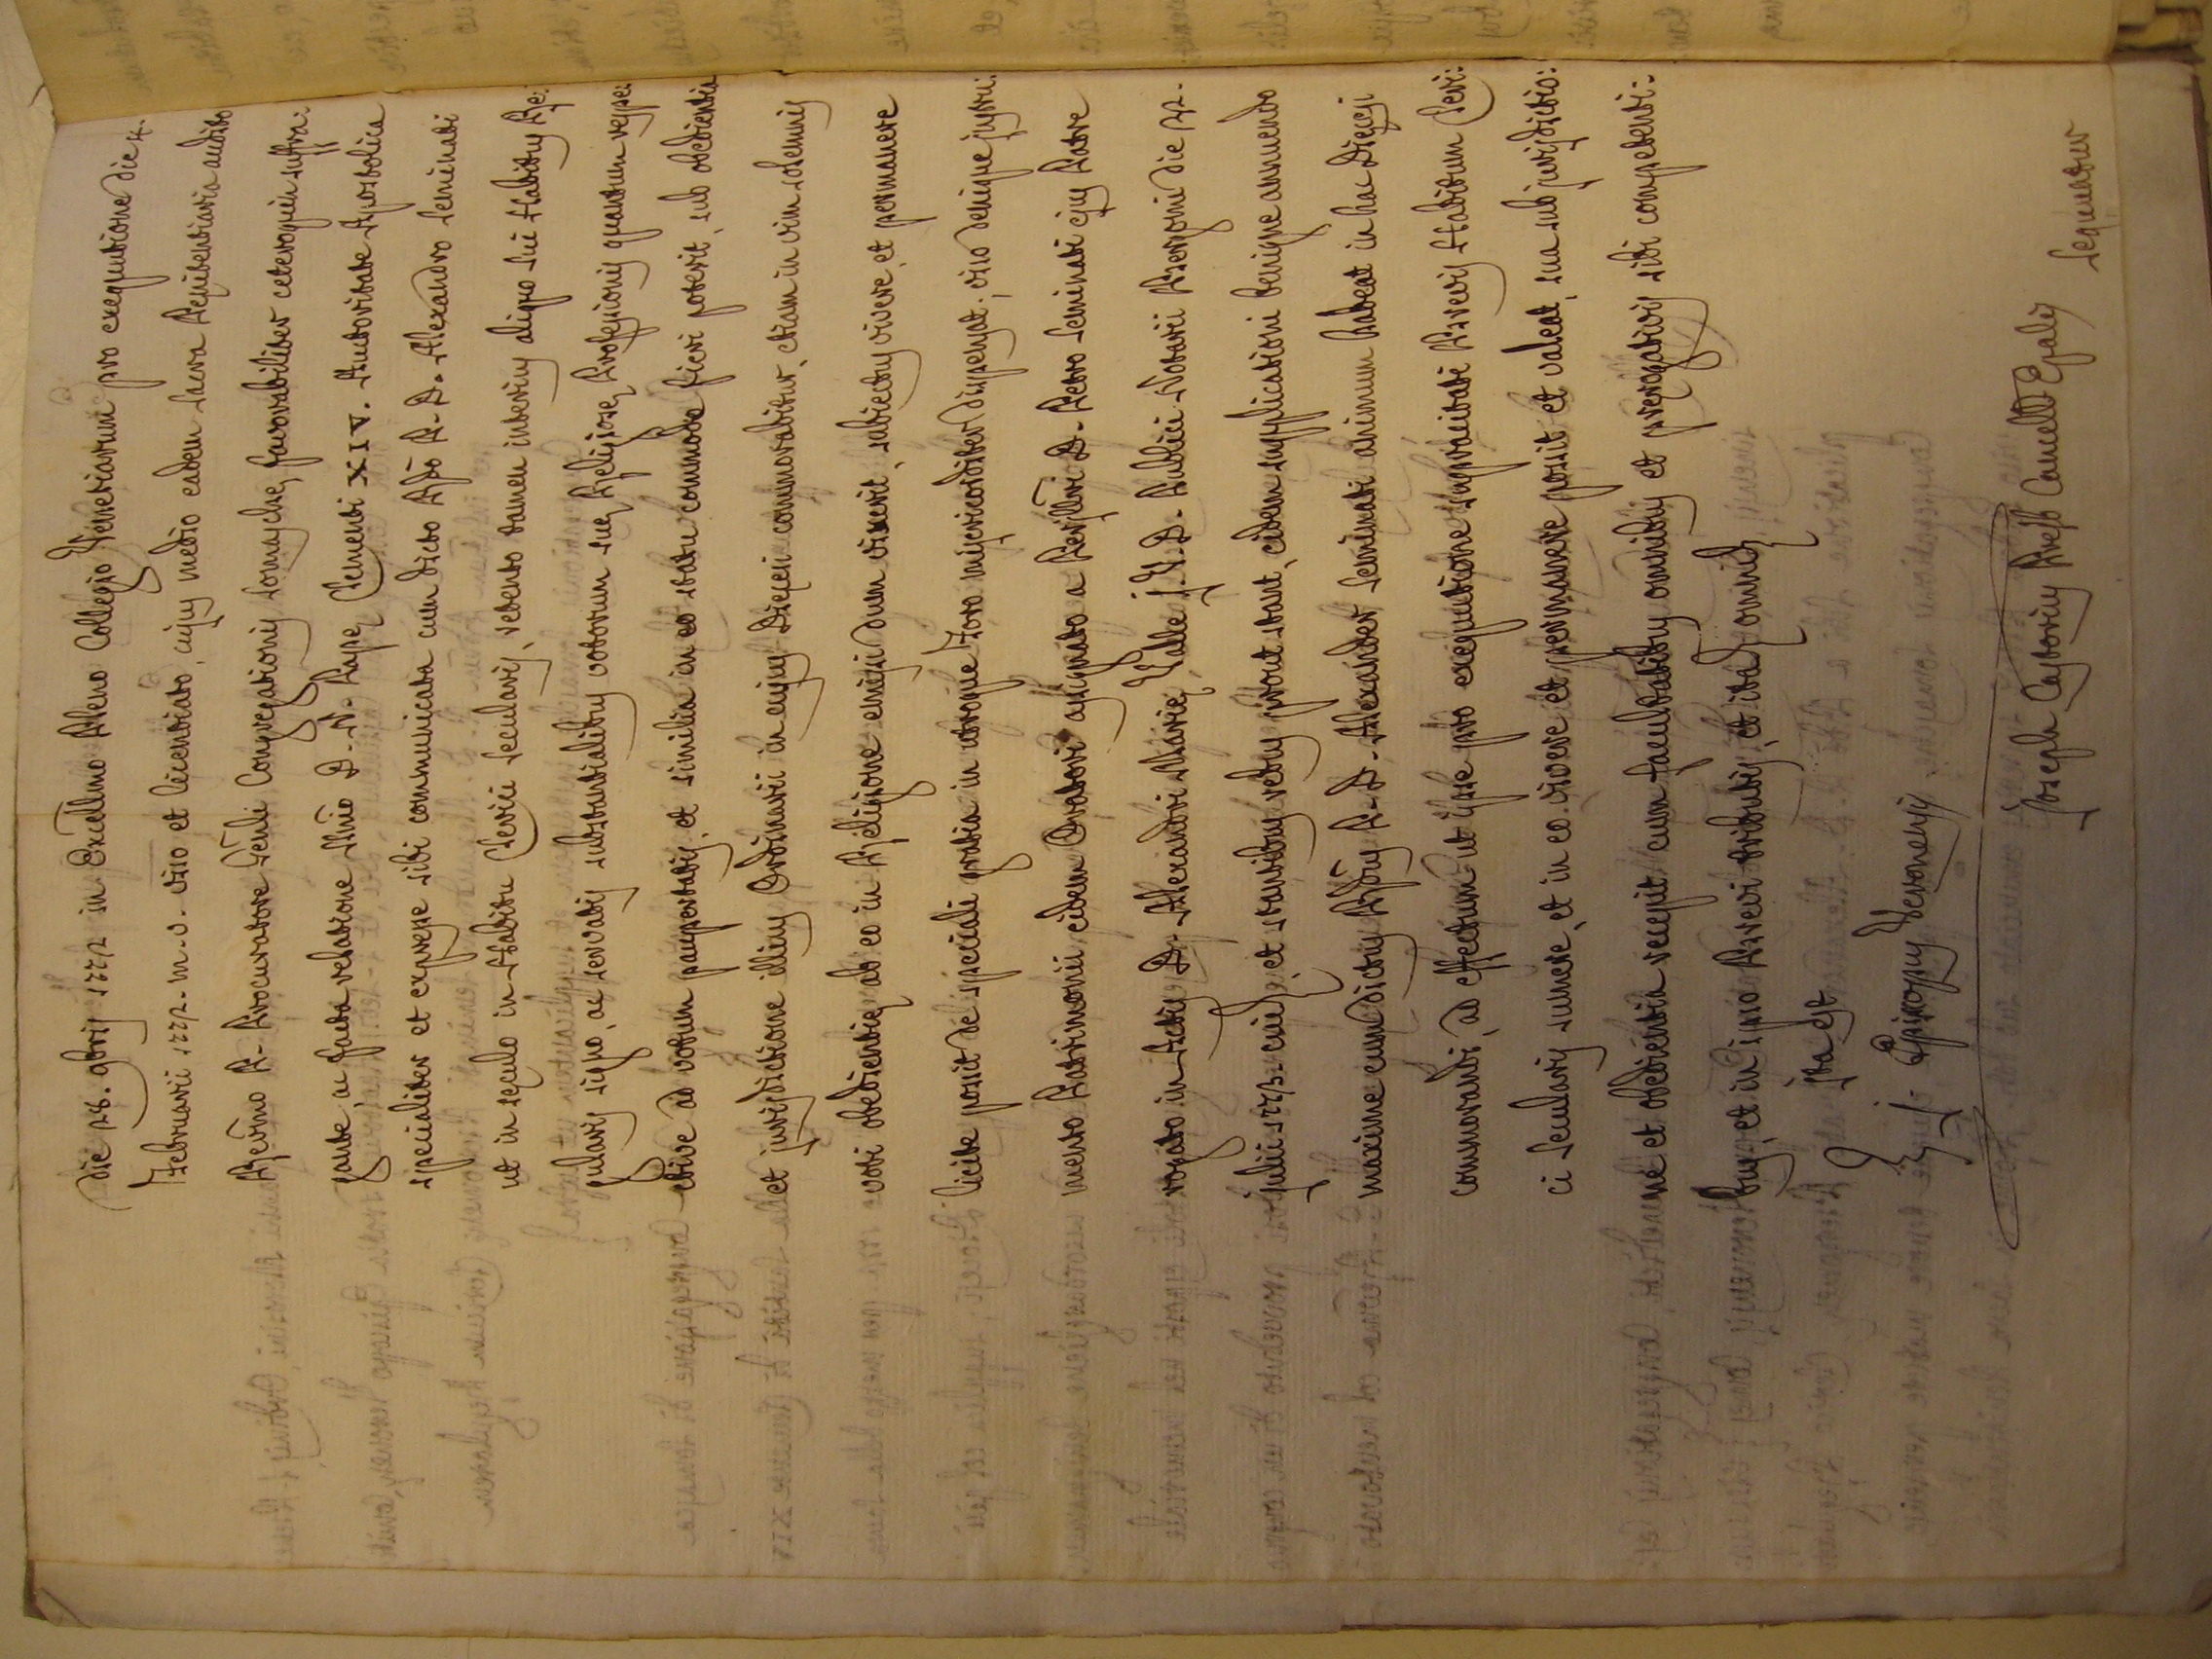 Die 28. 9bris 1772 in Excellmo Pleno Collegio Venetiarum pro exequutione die 4.
Februarii 1772. m. v. viso et licentiato, cujus medio eadem Sacra Penitentiaria audito
Rev̄mo P. Procuratore Gen̄li Congregationis Somaschæ favorabiliter ceteroquin suffra:
gante, ac facta relatione SSmo D. N. Papæ Clementi XIV. Auctoritate Apostolica
specialiter et expresse sibi communicata cum dicto Rdo P. D. Alexandro Seminati
ut in seculo in Habitu Clerici Secularis, retento tamen interius aliquo sui Habitus Re:
gularis signo, ac servatis substantialibus votorum suæ Religiosæ Professionis quantum respe:
ctive ad votum paupertatis, et similia in eo statu commode fieri poterit, sub obedientia
et jurisdictione illius Ordinarii in cujus Diœcesi commorabitur, etiam in vim solemnis
voti obedientiæ ab eo in Religione emissi dum vixerit, subiectus vivere, et permanere
licite possit de speciali gratia in utroque Foro misericorditer dispensat; viso denique jussu:
mento Patrimonii eidem Oratori assignato a Per̄illtri D. Petro Seminati ejus Patre
rogato in Actis D. Alexandri Mariæ Valle J. V. D. Publici Notarii Bergomi die 22.
julii 1773. cui, et stantibus rebus prout stant, eidem supplicationi benigne annuendo
maxime cum dictus Rdus P. D. Alexander Seminati animum habeat in hac Diœcesi
commorandi, ad effectum ut ipse pro exequutione supracitati Brevis Habitum Cleri:
ci Secularis sumere, et in eo vivere et permanere possit et valeat, sua sub jurisdictio:
ne et obedientia recepit cum facultatibus omnibus et prerogativis sibi competenti:
bus, et in ipso Brevi tributis, et ita omni
Ita est
Episcopus Veronensis
Joseph Cancell Epalis
Sequatur